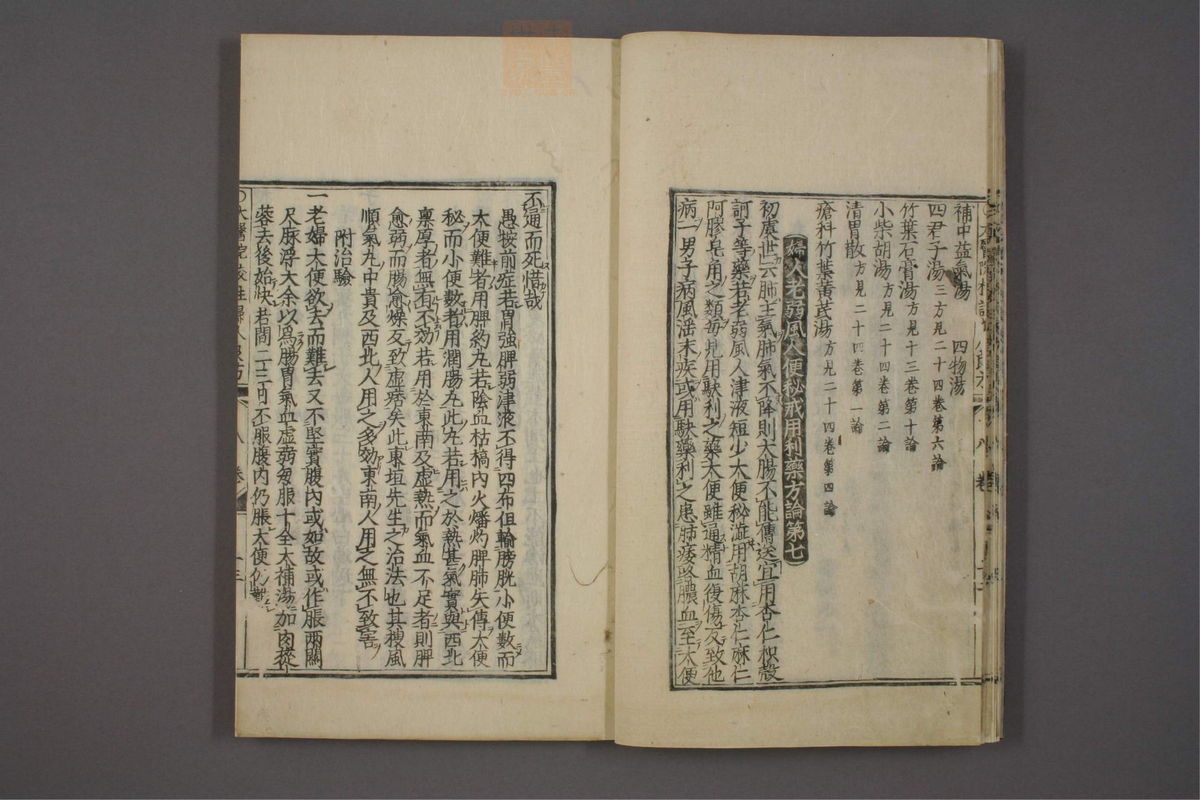 補中益氣湯　四物湯
四君子湯三方見二十四卷第六論
竹葉石膏湯方見十三卷第十論
小柴胡湯方見二十四卷第二論
清胃散方見二十四卷第一論
瘡科竹葉黃芪湯方見二十四卷第四論
婦人老弱風人便秘戒用利藥方論第七
初虞世云肺主氣肺氣不降則大腸不能傳送宜用杏仁枳殼
訶子等藥若老弱風人津液短少大便秘澁用胡麻杏仁麻仁
阿膠皂角之類每見用駃利之藥大便雖通精血復傷反致他
病一男子病風淫末疾或用駃藥利之患肺痿咯膿血至大便
不通而死惜哉
愚按前症若胃強脾弱津液不得四布但輸膀胱小便數而
大便難者用脾約丸若陰血枯槁內火燔灼脾肺失傳大便
秘而小便數者用潤腸丸此丸若用之於熱甚氣實與西北
禀厚者無有不効若用於東南及虛熱而氣血不足者則脾
愈弱而腸愈燥反致虛痞矣此東垣先生之治法也其搜風
順氣丸中貴及西北人用之多効東南人用之無不致害
附治驗
一老婦大便欲去而難去又不堅實腹內或如故或作脹兩關
尺脉浮大余以爲腸胃氣血虛弱每服十全大補湯加肉蓯
蓉去後始快若間二三日不服腹內仍脹大便仍難